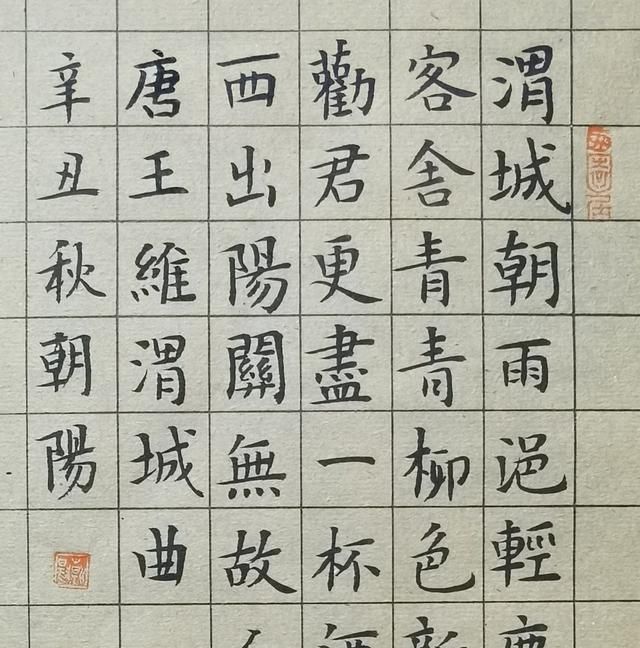 渭城朝雨浥輕
客舍青青柳色
勸君更盡一杯
西出陽關無故
唐王維渭城曲
辛丑秋朝陽